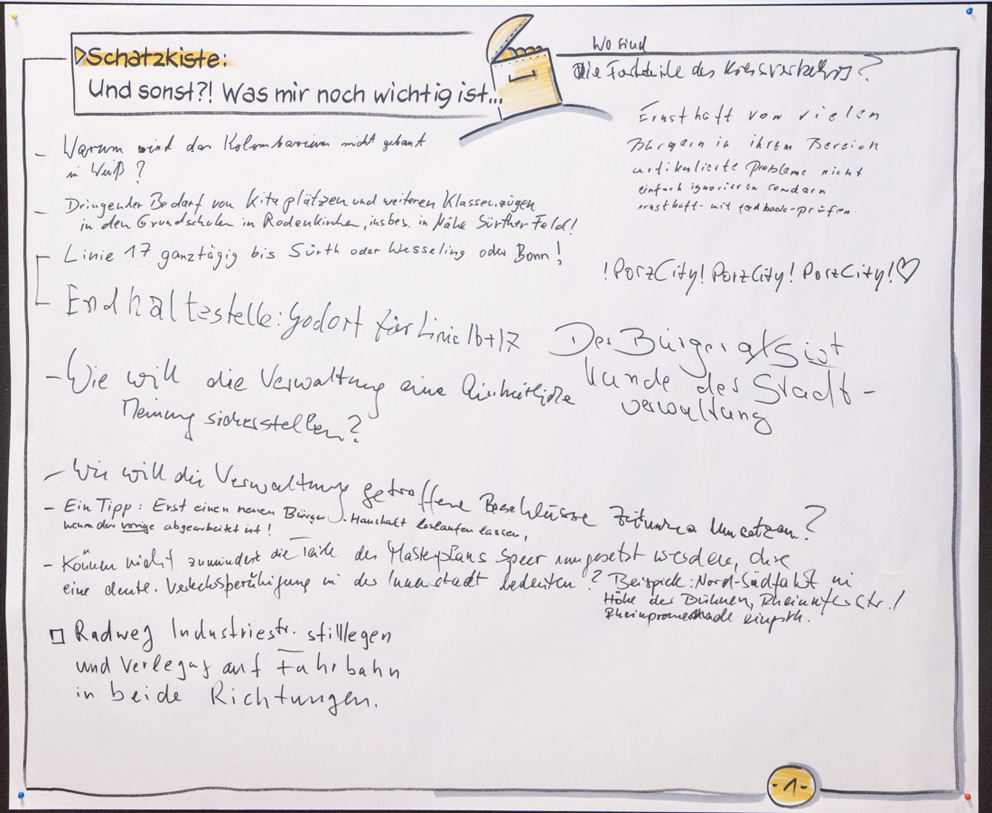 Schatzkiste:
Und sonst?! Was mir noch wichtig ist...
Wo sind
die Fachteile des Kreisverkehrs?
- Warum wird das Kolombarium nicht gebaut
in Weiß?
Ernsthaft von vielen
Bürgern in ihrem Bereich
artikulierte Probleme nicht
einfach ignorieren sondern
ernsthaft mit feedback prüfen.
- Dringender Bedarf von Kitaplätzen und weiteren Klassenzügen
in den Grundschulen in Rodenkirchen, insbes. in Nähe Sürther Feld!
Linie 17 ganztägig bis Sürth oder Wesseling oder Bonn!
!PorzCity! PorzCity! PorzCity!♡
Endhaltestelle: Godorf für Linie 16+17
Der Bürger ist
Kunde der Stadt-
verwaltung
- Wie will die Verwaltung eine einheitliche
Meinung sicherstellen?
- Wie will die Verwaltung getroffene Beschlüsse zeitnah umsetzen?
- Ein Tipp: Erst einen neuen Bürger-Haushalt loslaufen lassen,
wenn der vorige abgearbeitet ist!
- Können nicht zumindest die Teile des Masterplans Speer umgesetzt werden, die
eine Verkehrsberuhigung in der Innenstadt bedeuten? Beispiele: Nord-Südfahrt in
Höhe der Bühnen, Rheinuferstr./
Rheinpromenade
□ Radweg Industriestr. stillegen
und Verlegg auf Fahrbahn
in beide Richtungen.
-1-